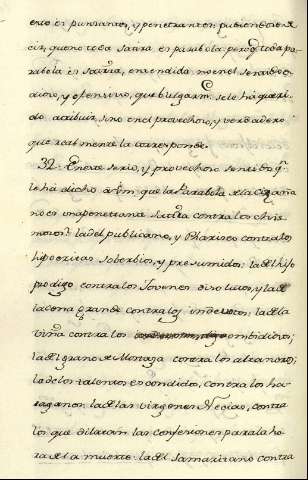 esto es punzantes, y penetrantes: pudiendose de-
cir, que no toda satira es parabola, pero q.e toda pa-
rabola es satira, entendida no en el sentido o-
dioso, y ofensivo, que vulgarm.te se le ha queri-
do atribuir, sino en el provechoso, y verdadero
que realmente la corresponde.
32. En este serio, y provechoso sentido q.e
le ha dicho a Vm. que la Parabola de la Cizaña
no es una penetrante Satira contra los
la del Publicano, y Phariseo contra los
hipocritas soberbios, y presumidos: la del hijo
prodigo contra los Jovenes disolutos, y la de
la cena grande contra los: la de la
viña contra los embidiosos;
la del grano de Mostaza contra los altaneros;
la de los talentos escondidos, contra los ha-
raganes: la de las virgenes Necias, contra
los que dilatan las confesiones para la ho-
ra de la muerte: la del Samaritano contra